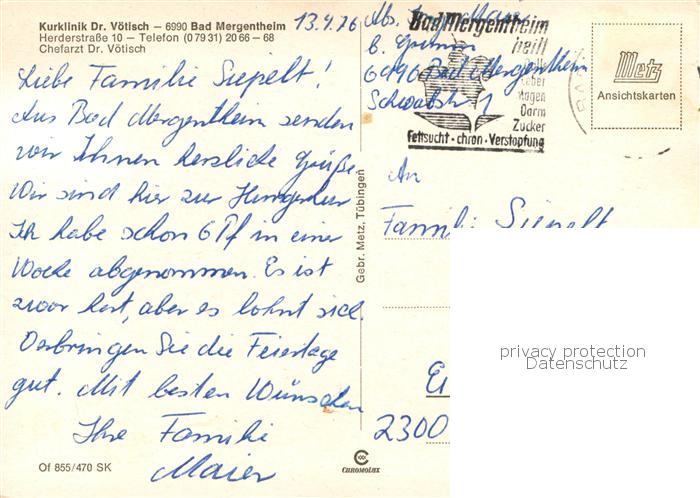 Kurklinik Dr. Vötisch – 6990 Bad Mergentheim
Herderstraße 10 – Telefon (0 79 31) 20 66 – 68
Chefarzt Dr. Vötisch
13.4.76
Liebe Familie Siepelt!
Aus Bad Mergentheim senden
wir Ihnen herzliche Grüße
Wir sind hier zur Hungerkur
Ich habe schon 6 Pf in einer
Woche abgenommen. Es ist
zwar hart, aber es lohnt sich.
Verbringen Sie die Feiertage
gut. Mit besten Wünschen
Ihre Familie
Maier
Of 855/470 SK
Gebr. Metz, Tübingen
CHROMOLUX
Abs.
Bad Mergentheim
Schwabstr 1
Bad Mergentheim
heilt
Galle
Leber
Magen
Darm
Zucker
Fettsucht · chron · Verstopfung
Metz
Ansichtskarten
An
Familie Siepelt
privacy protection
Datenschutz
2300